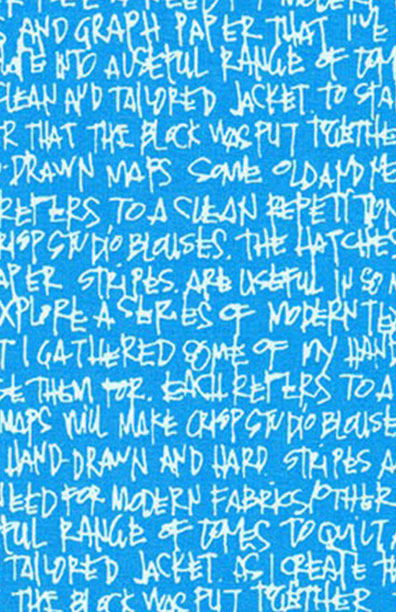 S AND GRAPH PAPER THAT I'VE
INTO A USEFUL RANGE OF TOMES
CLEAN AND TAILORED JACKET TO STA
R THAT THE BLOCK WAS PUT TOGETHE
DRAWN MAPS SOME OLD AND NE
REFERS TO A CLEAN REPETITION
RISP STUDIO BLOUSES. THE HATCHES
APER STRIPES. ARE USEFUL IN SO M
XPLORE A SERIES OF MODERN TEX
T I GATHERED SOME OF MY HAND
SE THEM FOR. EACH REFERS TO A
MAPS WILL MAKE CRISP STUDIO BLOUSE
HAND-DRAWN AND HARD STRIPES A
NEED FOR MODERN FABRICS/OTHER
FUL RANGE OF TOMES TO QUILT A
TAILORED JACKET. AS I CREATE TH
THE BLOCK WAS PUT TOGETHER